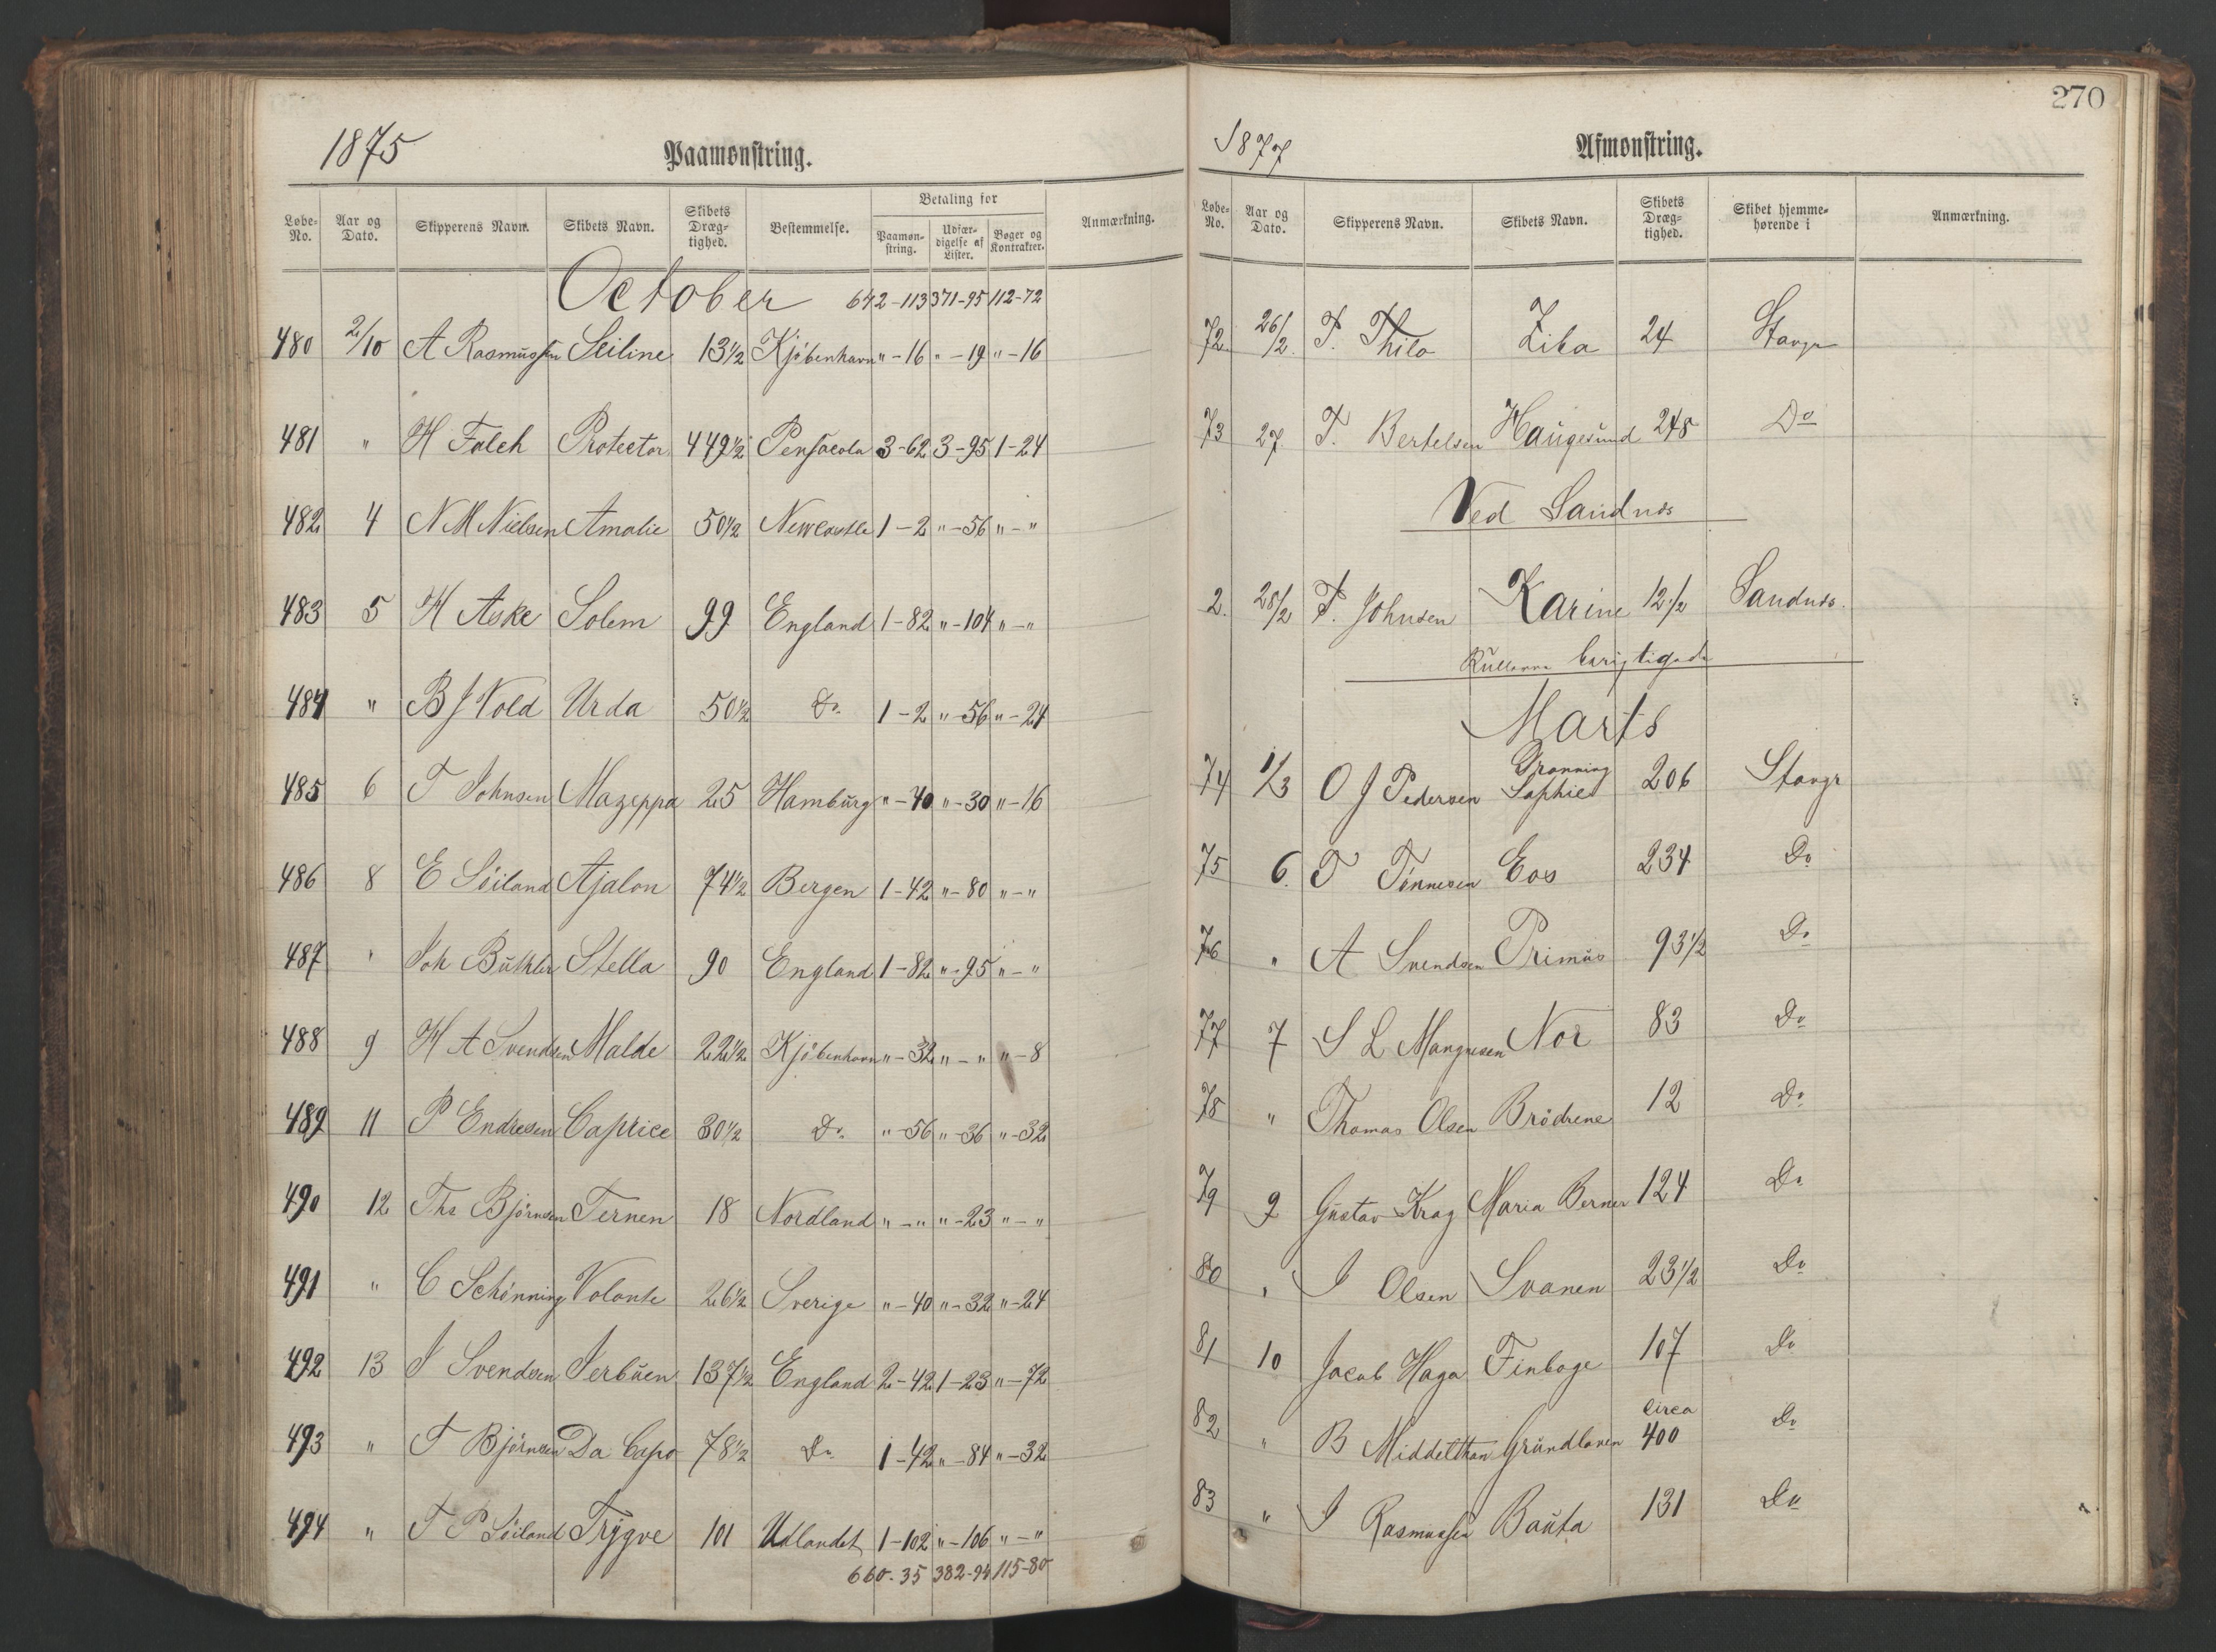 1875
Paamønstring.
Løbe-No. | Aar og Dato. | Skipperens Navn. | Skibets Navn. | Skibets Dræg-tighed. | Bestemmelse. | Betaling for | Paamøn-string. | Udfær-digelse af Lister. | Bøger og Kontrakter. | Anmærkning.
October 642-113 371-95 112-72
480 2/10 A Rasmussen Seiline 13 1/2 Kjöbenhavn " -16 " -19 " -16
481 " H Falch Protector 449 1/2 Pensacola 3-62 3-95 1-24
482 4 N M Nielsen Amalie 50 1/2 Newcastle 1-2 " -56 " - "
483 5 H Aske Solem 99 England 1-82 " -104 " - "
484 " B J Vold Urda 50 1/2 Do 1-2 " -56 " -24
485 6 T Johnsen Mazeppa 25 Hamburg " -40 " -30 " -16
486 8 E Söiland Ajalon 74 1/2 Bergen 1-42 " -80 " - "
487 " Joh Stella 90 England 1-82 " -95 " - "
488 9 H A Svendsen Malde 22 1/2 Kjöbenhavn " -32 " - " " -8
489 11 P Endresen Caprice 30 1/2 Do " -56 " -36 " -32
490 12 Ths Björnsen Ternen 18 Nordland " - " " -23 " - "
491 " C Schönning Volante 26 1/2 Sverige " -40 " -32 " -24
492 13 J Svendsen Jerbuen 137 1/2 England 2-42 1-23 " -72
493 " T Björnsen Da Capo 78 1/2 Do 1-42 " -84 " -32
494 " T P Söiland Trygve 101 Udlandet 1-102 " -106 " - "
660-35 382-94 115-80
270
1877
Afmønstring.
Løbe-No. | Aar og Dato. | Skipperens Navn. | Skibets Navn. | Skibets Dræg-tighed. | Skibet hjemme-hørende i | Anmærkning.
72 26/2 T. Thilo 24 Stavgr
73 27 T. Bertelsen Haugesund 248 Do
Ved Sandnes
2. 28/2 T. Johnsen Karine 12 1/2 Sandnes.
Marts
74 1/3 O J Pedersen Dronning Sophie 206 Stavgr
75 6. T Tönnesen Eos 234 Do
76 " A Svendsen Primus 93 1/2 Do
77 7 S L Mangnesen Nor 83 Do
78 " Thomas Olsen Brödrene 12 Do
79 9 Gustav Krag Maria Berner 124 Do
80 " J Olsen Svanen 23 1/2 Do
81 10 Jacob Haga Finboge 107 Do
82 " B Middelthon Grundloven circa 400 Do
83 " J Rasmussen Bauta 131 Do